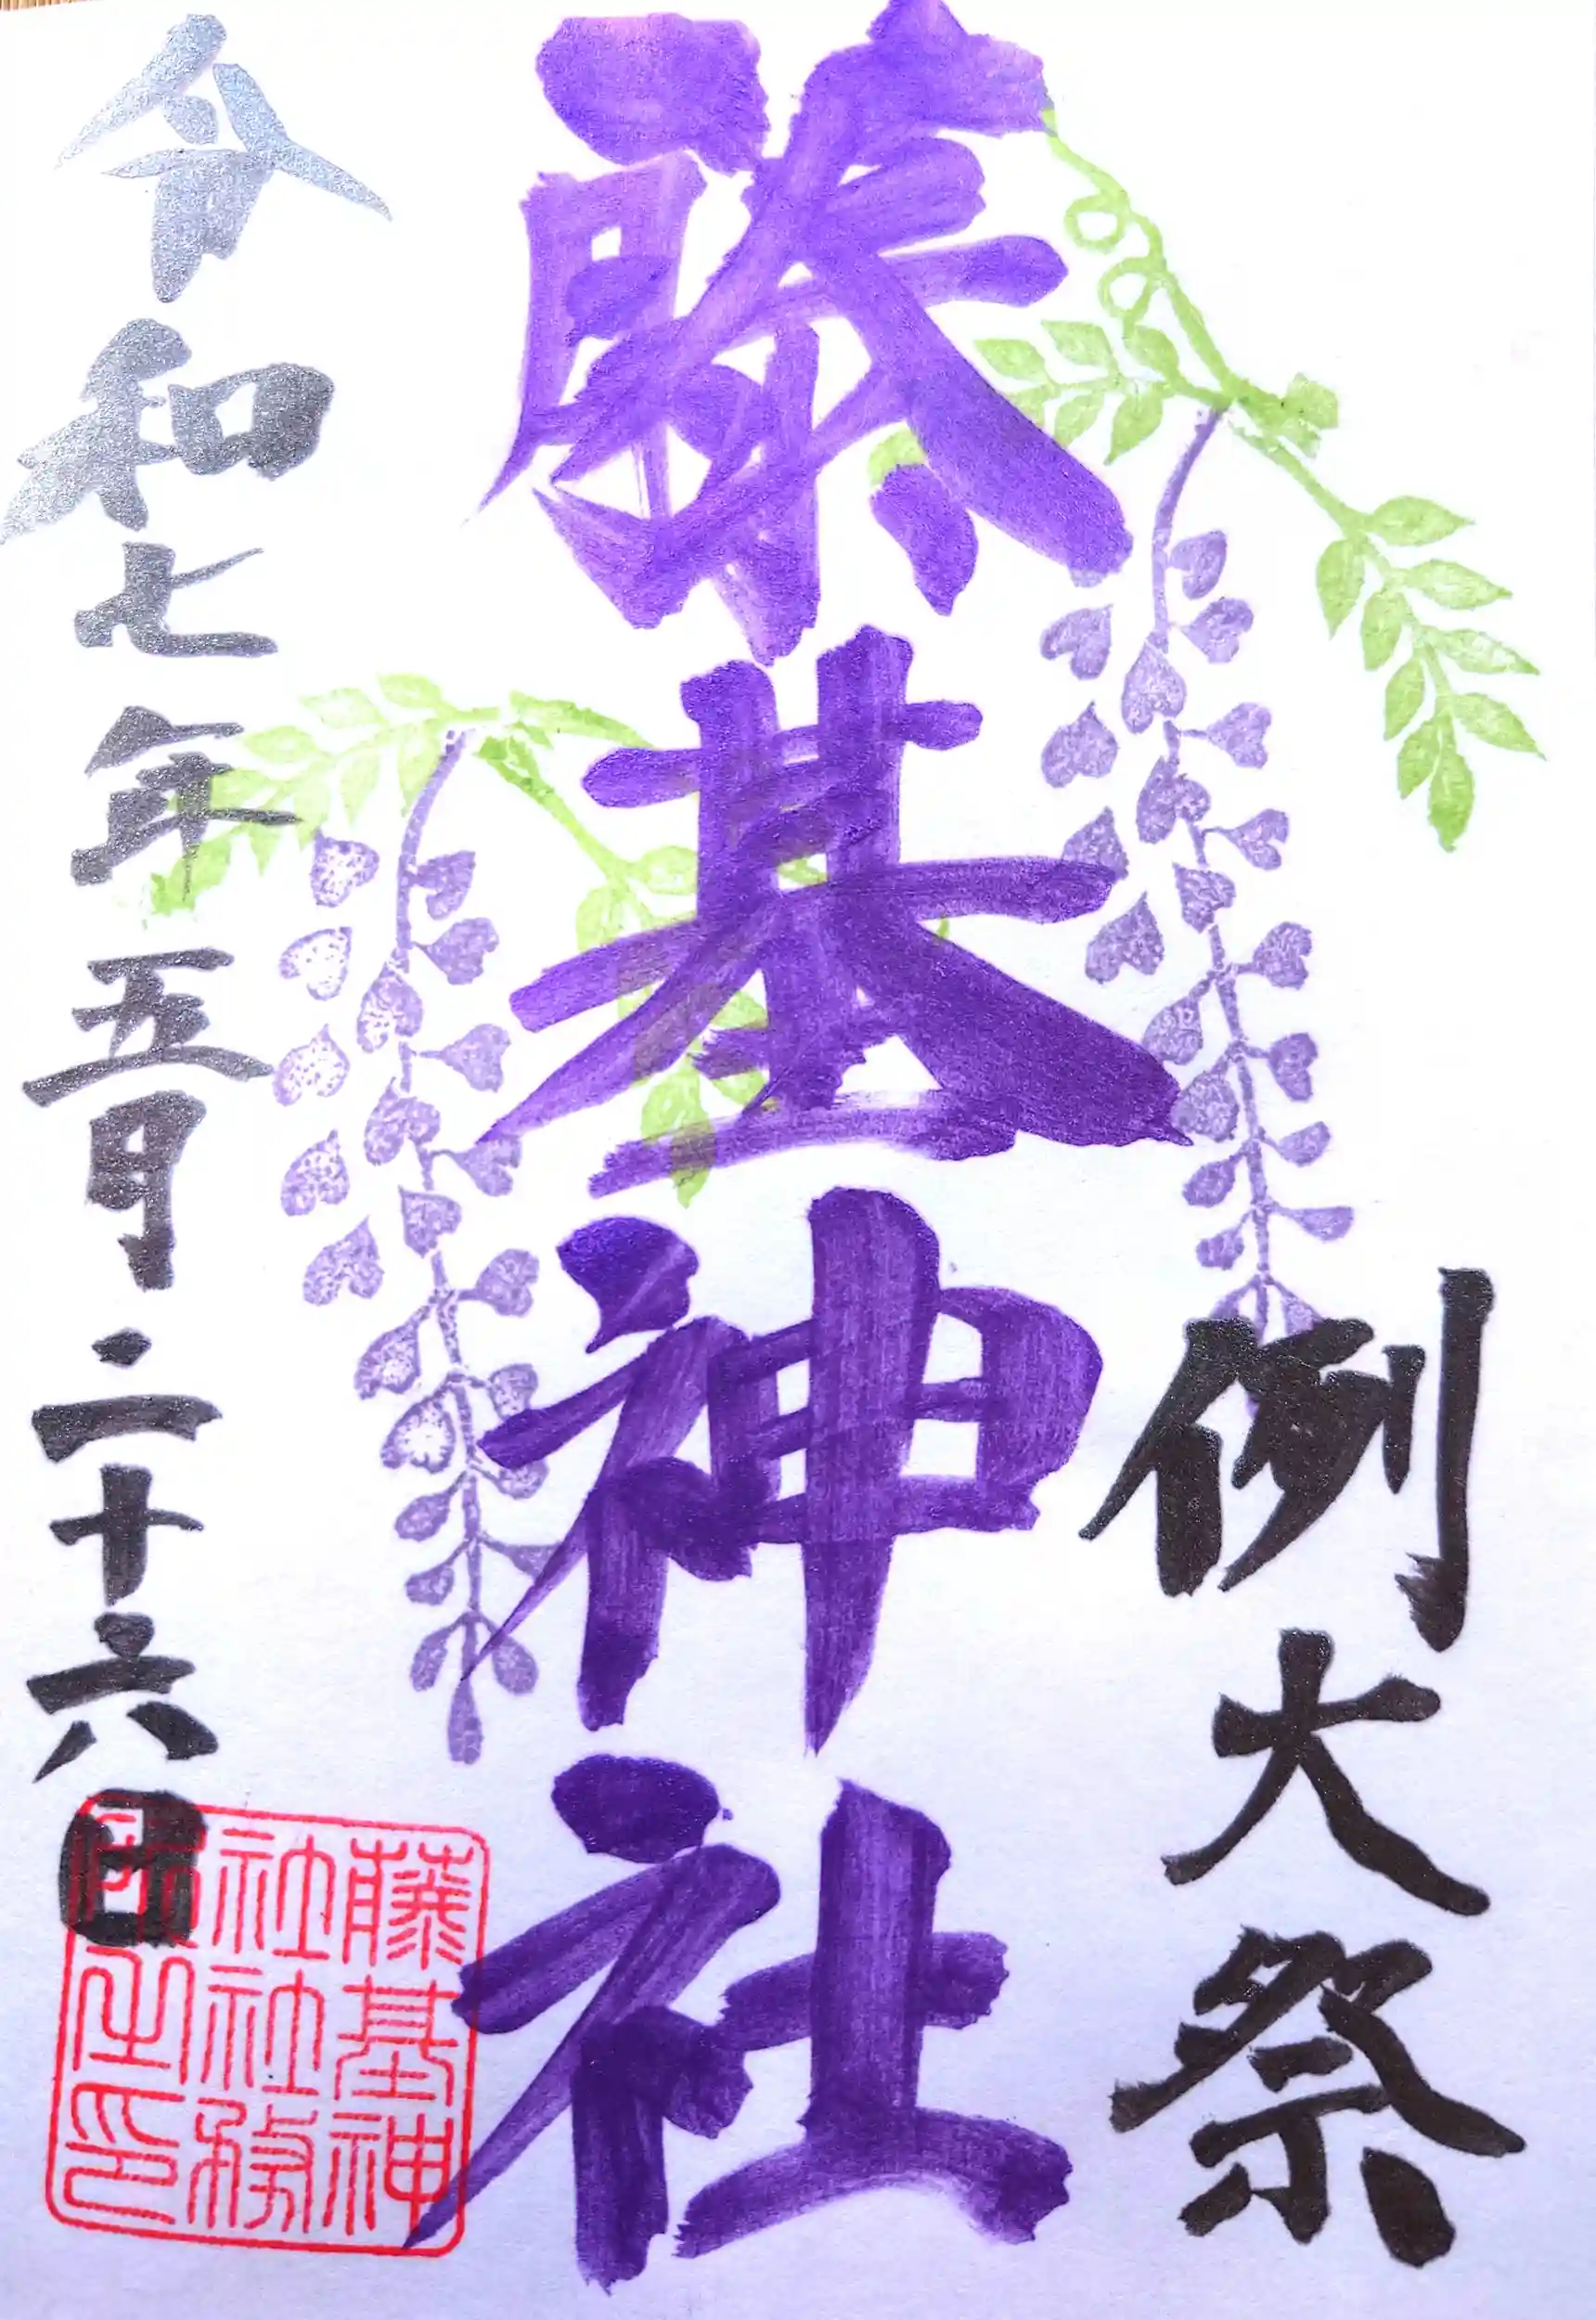 例大祭
藤基神社
令和七年五月二十六日
藤基神
社社務
所之印